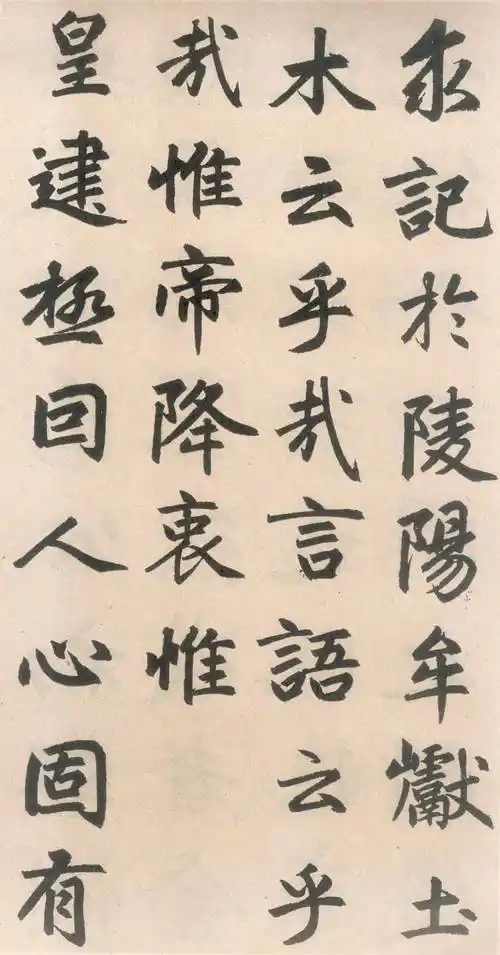 求記於陵陽牟巘土
木云乎哉言語云乎
哉惟帝降衷惟
皇建極囙人心固有